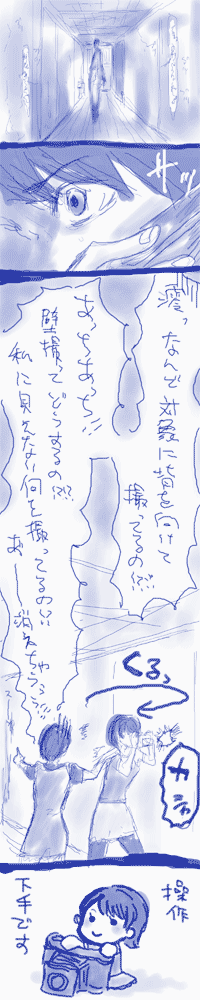 ザッ
澪っ
なんで対象に背を向けて
撮ってるの!?!
あっちあっち!!
壁撮ってどうするの!?!
私に見えない何を撮ってるの!?
あ――消えちゃうぅ!!!
くるっ
カシャ
操作
下手です